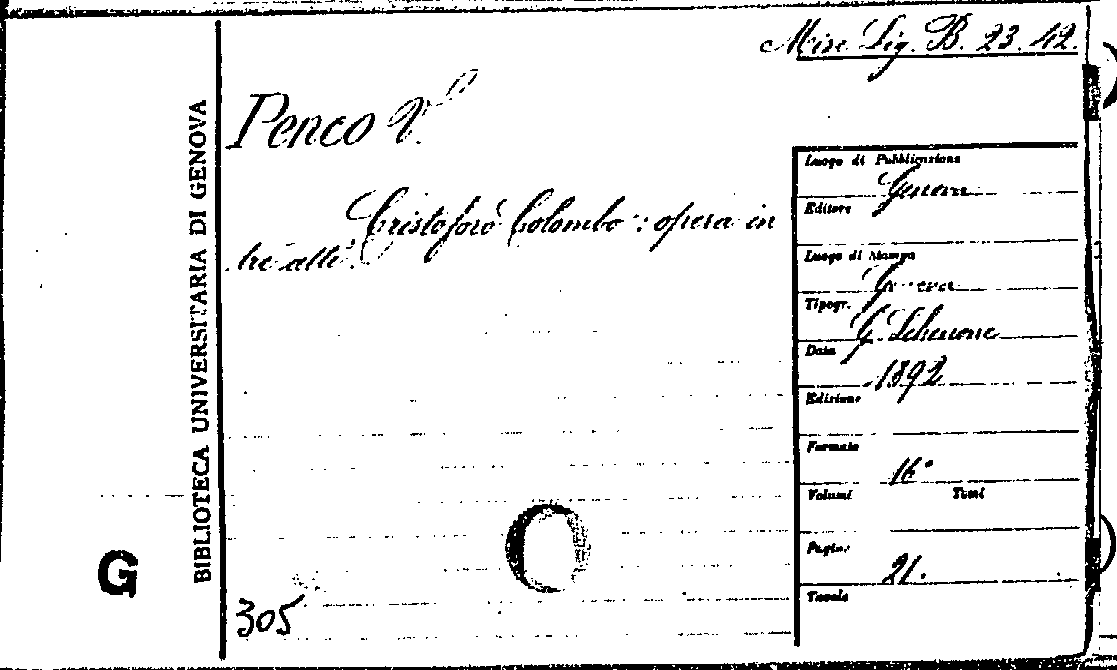 Misc. Lig. B. 23. 42.
Penco V.
Cristoforo Colombo : opera in
tre atti.
BIBLIOTECA UNIVERSITARIA DI GENOVA
G
305
Luogo di Pubblicazione
Genova
Editore
Luogo di Stampa
Genova
Tipogr.
G. Schenone
Data
1892
Edizione
Formato
16°
Volumi Tomi
Pagine
21.
Tavole